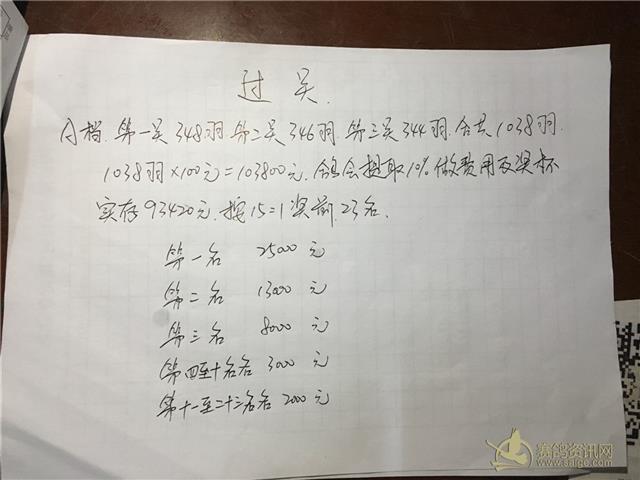 过关.
A档. 第一关348羽 第二关346羽. 第三关344羽. 合共1038羽.
1038羽×100元=103800元. 鸽会提取10%做费用及奖杯
实存93420元. 按15=1奖前23名.
第一名 25000元
第二名 13000元
第三名 8000元
第四至十名各 3000元
第十一至二十三名各 2000元
赛鸽资讯网
www.saige.com